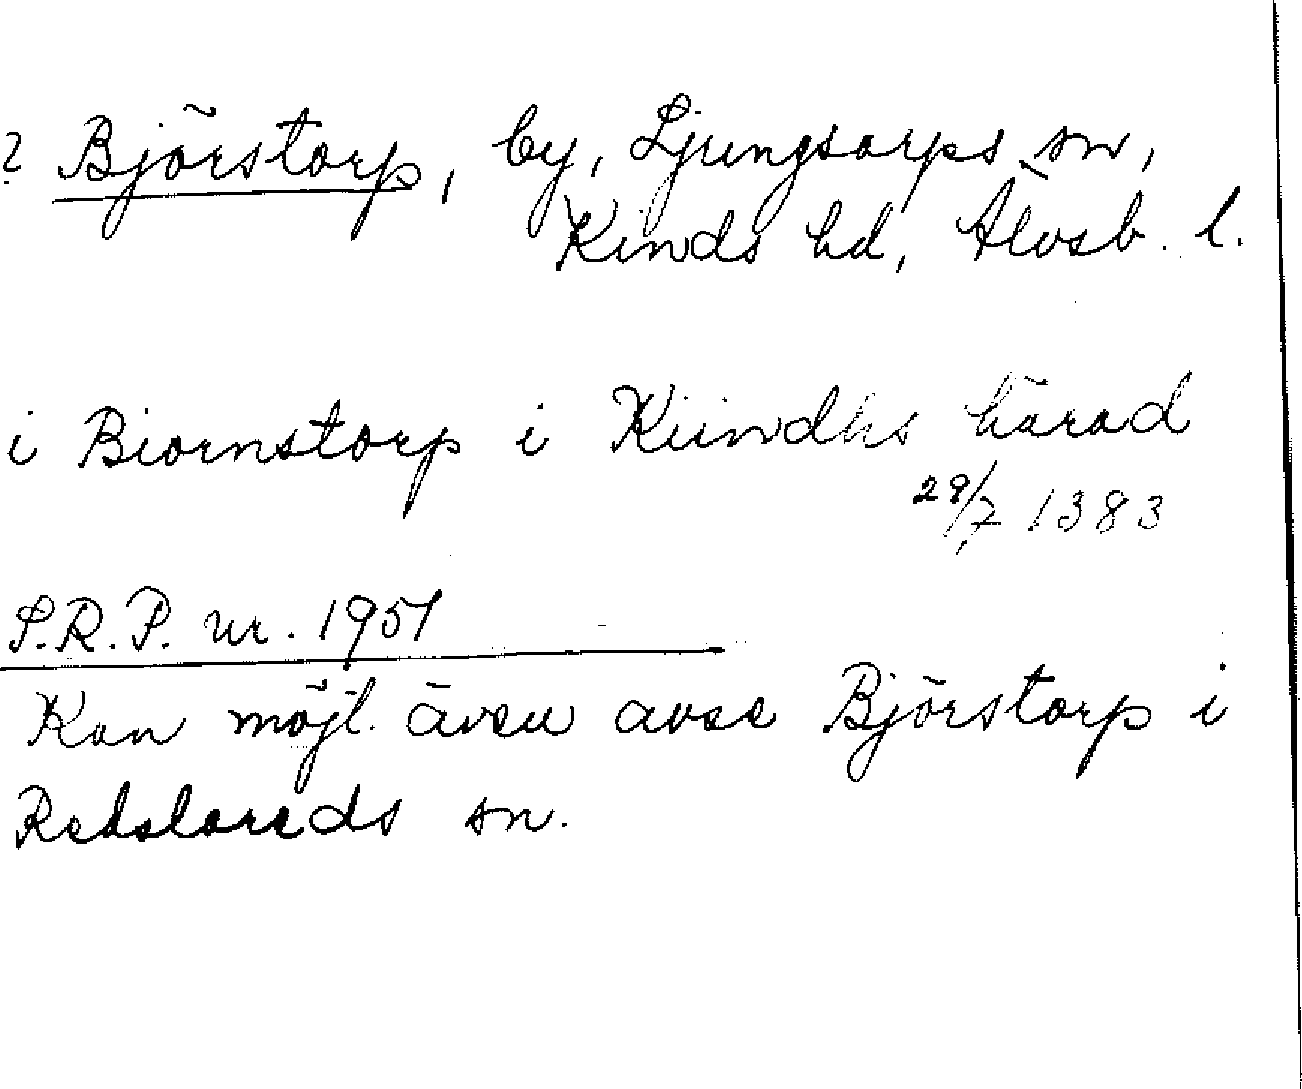 ? Björstorp, by, Ljungsarps sn,
Kinds hd, Älvsb. l.
i Biornstorp i Kiindhs härad
28/7 1383
S.R.P. nr. 1951
Kan möjl. även avse Björstorp i
Redslareds sn.